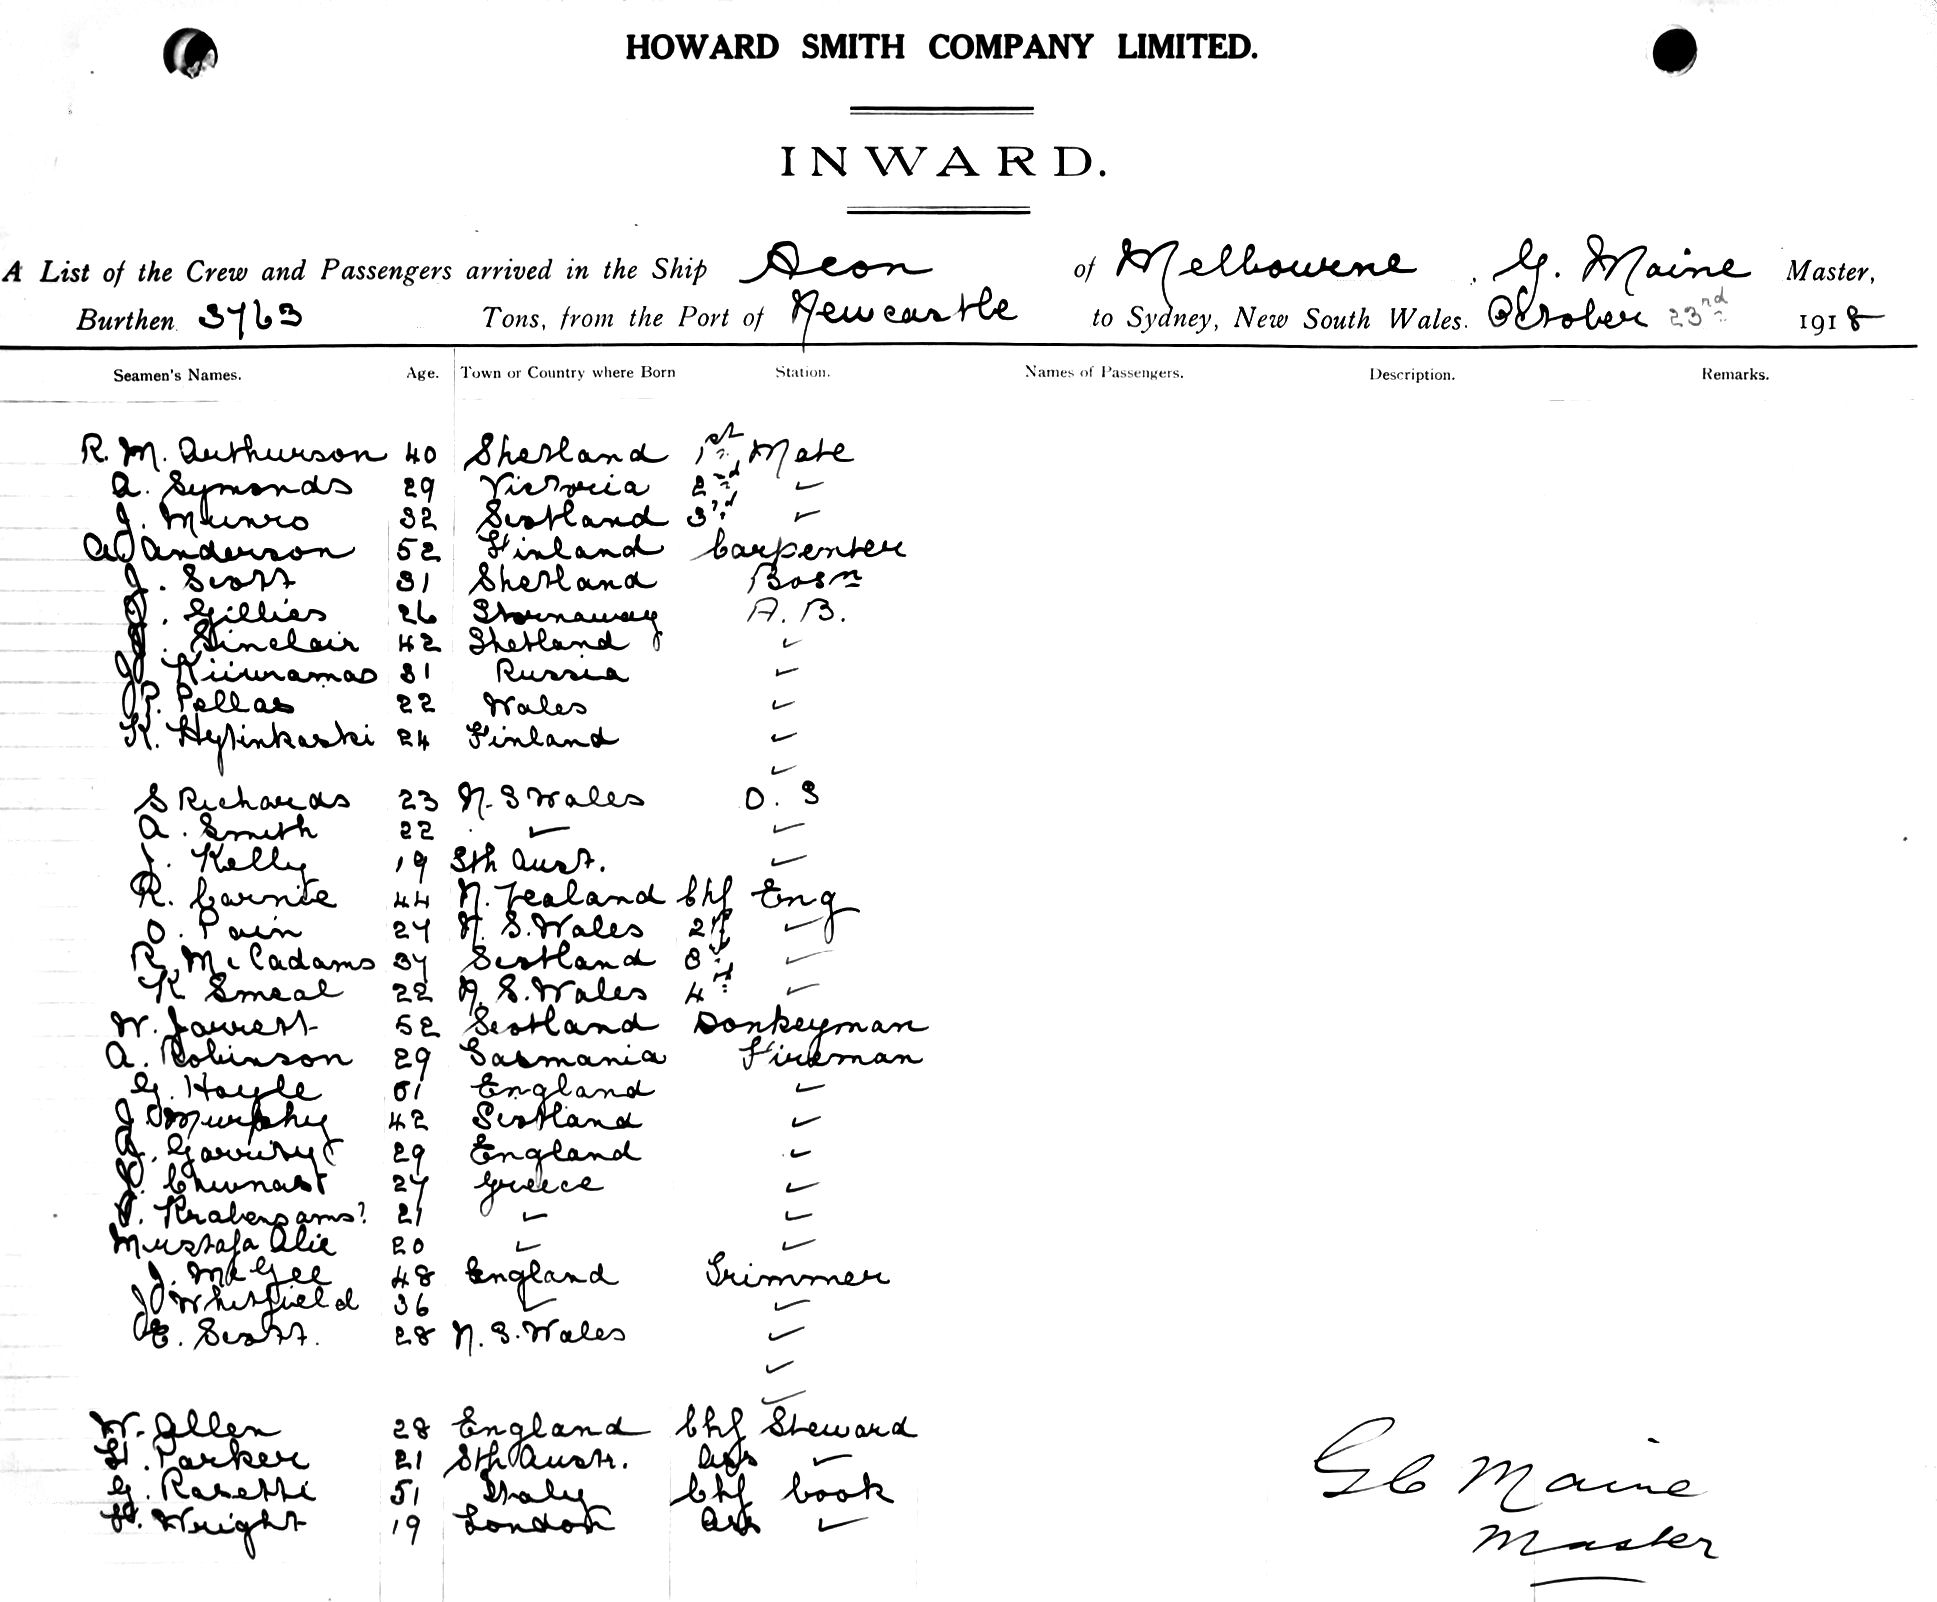 HOWARD SMITH COMPANY LIMITED.
INWARD.
A List of the Crew and Passengers arrived in the Ship Aeon of Melbourne, G. Maine Master,
Burthen 3763 Tons, from the Port of Newcastle to Sydney, New South Wales. October 23rd 1918
Seamen's Names. Age. Town or Country where Born Station. Names of Passengers. Description. Remarks.
R. M. Arthurson 40 Shetland 1st Mate
A. Symonds 29 Victoria 2nd ✓
J. Munro 32 Scotland 3rd ✓
Anderson 52 Finland Carpenter
J. Scott 31 Shetland Bosn
Gillies 26 Stornaway A. B.
Sinclair 42 Shetland ✓
31 Russia ✓
P. Pellas 22 Wales ✓
K. 24 Finland ✓
✓
S Richards 23 N. S Wales O. S
A. Smith 22 ✓ ✓
J. Kelly 19 Sth Aust. ✓
R. Carnie 44 N. Zealand Chf Eng
O. Pain 27 N. S. Wales 2nd ✓
R. McCadams 37 Scotland 3rd ✓
K Smeal 22 N. S. Wales 4th ✓
W. Jarrett 52 Scotland Donkeyman
A. Robinson 29 Tasmania Fireman
G. Hoyle 51 England ✓
J Murphy 42 Scotland ✓
Garrity 29 England ✓
27 Greece ✓
21 ✓ ✓
Mustafa Alie 20 ✓ ✓
J. McGee 48 England Trimmer
J Whitfield 36 ✓ ✓
E. Scott. 28 N. S. Wales ✓
✓
✓
W. Allen 28 England Chf Steward
H. Parker 21 Sth Austr. Ass ✓
G. Rosetti 51 Italy Chf Cook
H. Wright 19 London Ass ✓
G C Maine
Master